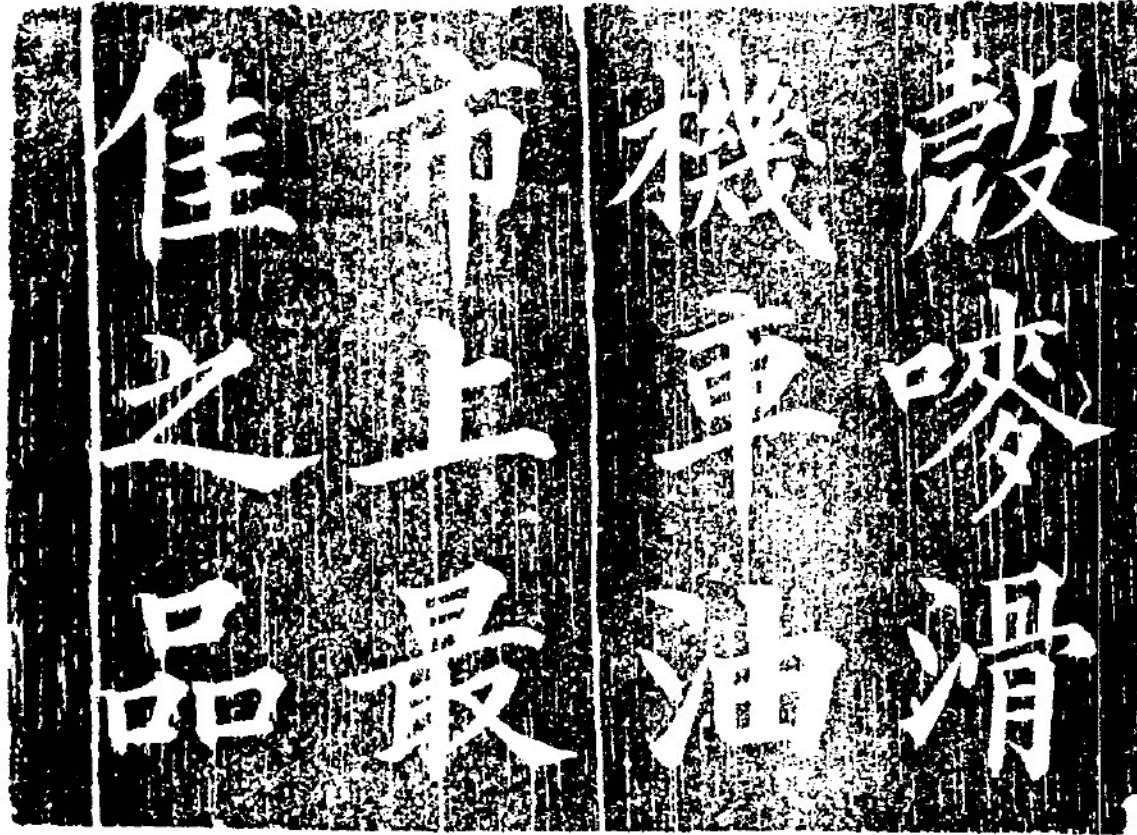 殼嘜滑
機車油
市上最
佳之品